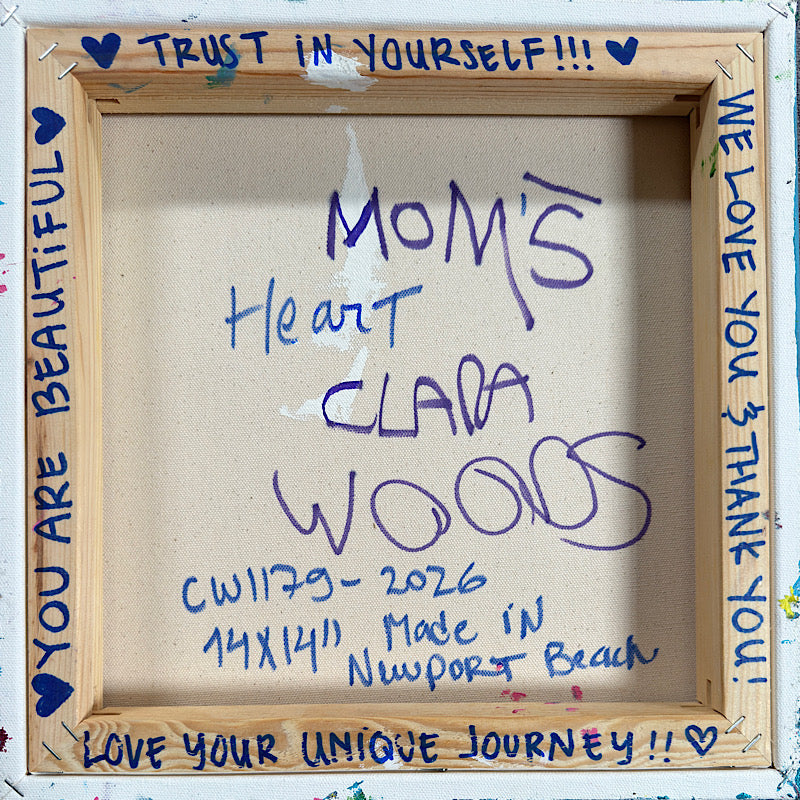 ♥ TRUST IN YOURSELF!!! ♥
WE LOVE YOU & THANK YOU!
♥ YOU ARE BEAUTIFUL ♥
MOM'S
HearT
CLARA
WOODS
CW1179-2026
14X14" Made iN
NewpORT Beach
LOVE YOUR UNIQUE JOURNEY!! ♡